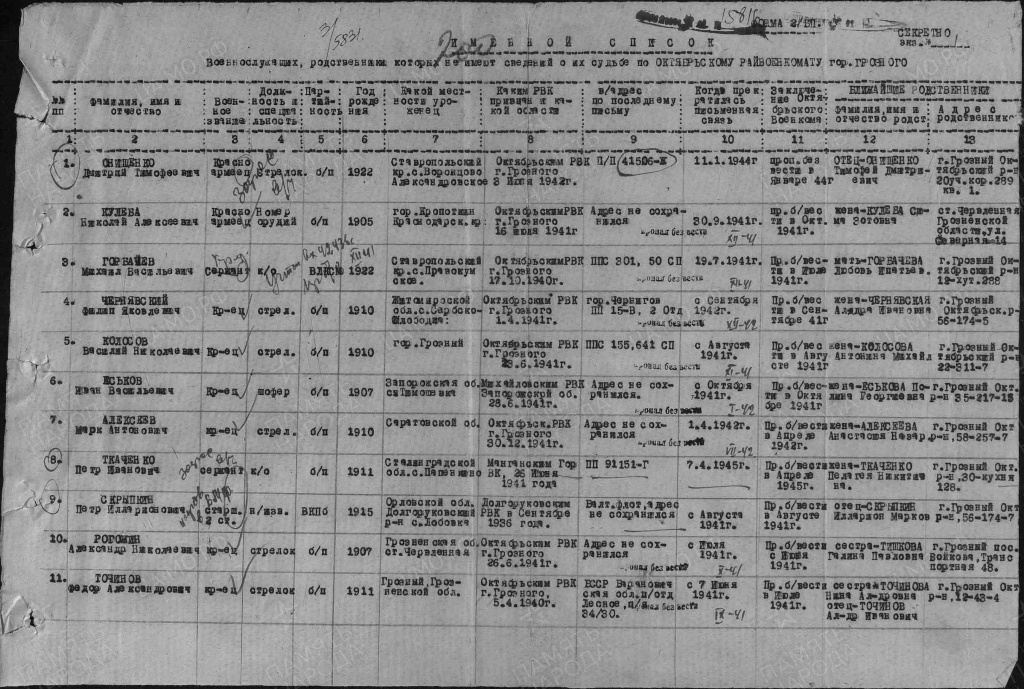 3/5831.
1581
ФОРМА 2/БП.
СЕКРЕТНО
экз.№ 1
ИМЕННОЙ СПИСОК
Военнослужащих, родственники которых не имеют сведений о их судьбе по ОКТЯБРЬСКОМУ РАЙВОЕНКОМАТУ гор.ГРОЗНОГО
№№ пп | Фамилия, имя и отчество | Воен-ное звание | Долж-ность и специа льность | Пар-тий-ность | Год рожде ния | Какой мест-ности уро-женец | Каким РВК призван и ка-кой области | в/адрес по последнему письму | Когда прек ратилась письменная связь | Заключе-ние Октя-брьского Военкома | БЛИЖАЙШИЕ РОДСТВЕННИКИ
Фамилия,имя и отчество родст. | Адрес родственнико
1 2 3 4 5 6 7 8 9 10 11 12 13
1. ОНИЩЕНКО Красно Ставропольский Октябрьским РВК П/П 41506-Ж 11.1.1944г проп.без ОТЕЦ-ОНИЩЕНКО г.Грозный Ок-
Дмитрий Тимофеевич армеец стрелок б/п 1922 кр.с.Воронцово г.Грозного вести в Тимофей Дмитри- тябрьский р-н
Александровское 3 Июля 1942г. Январе 44г евич 20уч.кор.289
кв. 1.
2. КУЛЕВА Красно Номер гор.Кропоткин ОктябрьскимРВК Адрес не сохра- Пр.б/вес жена-КУЛЕВА ст.Червленная
Николай Алексеевич армеец орудий б/п 1905 Краснодарск.кр. г.Грозного нился 30.9.1941г. ти в Окт. ма Зотовна Грозненской
16 июля 1941г пропал без вести XII-41 1941г. области,ул.
Северная-14
3. ГОРБАЧЕВ Ставропольский ОктябрьскимРВК ППС 301, 50 СП 19.7.1941г. Пр.б/вес- мать-ГОРБАЧЕВА г.Грозный Ок-
Михаил Васильевич Сержант к/р ВЛКСМ 1922 кр.с.Правокум г.Грозного ти в Июле Любовь Ипатьев. тябрьский р-н
ское. 17.10.1940г. пропал без вести 1941г. 12-хут.288
4. ЧЕРНЯВСКИЙ Житомирской Октябрьским РВК гор.Чернигов с Сентября Пр.б/вес жена-ЧЕРНЯВСКАЯ г.Грозный
Филип Яковлевич Кр-ец стрел. б/п 1910 обл.с.Сербско- г.Грозного ПП 15-В, 2 Отд 1942г. ти в Сен- Ал-дра Ивановна Октябрьск.р-
Слободца: 1.4.1941г. пропал без вести XII-42 тябре 41г 56-174-5
5. КОЛОСОВ гор.Грозный Октябрьским РВК ППС 155,641 СП с Августа Пр.б/вес жена-КОЛОСОВА г.Грозный Ок-
Василий Николаевич Кр-ец стрел. б/п 1910 г.Грозного 1941г. ти в Авгу Антонина Михайл тябрьский р-н
23.6.1941г. пропал без вести XI-41 сте 1941г 22-311-7
6. ЕСЬКОВ Запорожская об. Михайловским РВК Адрес не сох- с Октября Пр.б/вес- жена-ЕСЬКОВА По- г.Грозный Окт
Иван Васильевич Кр-ец шофер б/п 1907 с.Тимошевка Запорожской об. ранился. 1941г. ти в Октя лина Георгиевна р-н 35-217-13
23.6.1941г. пропал без вести I-42 бре 1941г
7. АЛЕКСЕЕВ Саратовской об. Октябрьск.РВК Адрес не сох- 1.4.1942г. Пр.б/вести жена-АЛЕКСЕЕВА г.Грозный Окт
Марк Антонович кр-ец стрел. б/п 1910 г.Грозного ранился в Апреле Анастасия Назар. р-н,58-257-7
30.12.1941г. пропал без вести VII-42 1942г.
8. ТКАЧЕНКО Сталинградской Манганским Гор ПП 91151-Г 7.4.1945г. Пр.б/вести жена-ТКАЧЕНКО г.Грозный Окт
Петр Иванович сержант к/о б/п 1911 обл.с.Папенкино ВК, 26 Июня в Апреле Пелагея Никитич р-н,30-кухня
1941 года 1945г. на 128.
9. СКРЫПКИН Орловской обл. Долгоруковским Балт.флот,адрес Пр.б/вести отец-СКРЫПКИН г.Грозный Окт
Петр Илларионович старш. н/изв. ВКПб 1915 Долгоруковский РВК в Сентябре не сохранился с Августа в Августе Илларион Марков р-н,56-174-7
2 ст. р-н с.Лобовка 1936 года. 1941г. 1941г.
10. РОГОЖИН Грозненская об. Октябрьским РВК Адрес не сох- с Июля Пр.б/вести сестра-ТИШКОВА г.Грозный пос.
Александр Николаевич кр-ец стрелок б/п 1907 ст.Червленная г.Грозного ранился 1941г. с Июля Галина Павловна Войкова,Транс
26.6.1941г. пропал без вести X-41 1941г. портная 48.
11. ТОЧИНОВ Грозный,Гроз- Октябрьским РВК БССР Баранович с 7 Июня Пр.б/вести сестра ТОЧИНОВА г.Грозный Окт
Федор Александрович кр-ец стрелок б/п 1911 ненской обл. г.Грозного, ская обл.п/отд 1941г. в Июле Нина Ал-дровна р-н,12-43-4
5.4.1940г. Лесное,п/я пропал без вести 1941г. отец-ТОЧИНОВ
34/30. IX-41 Ал-др Иванович